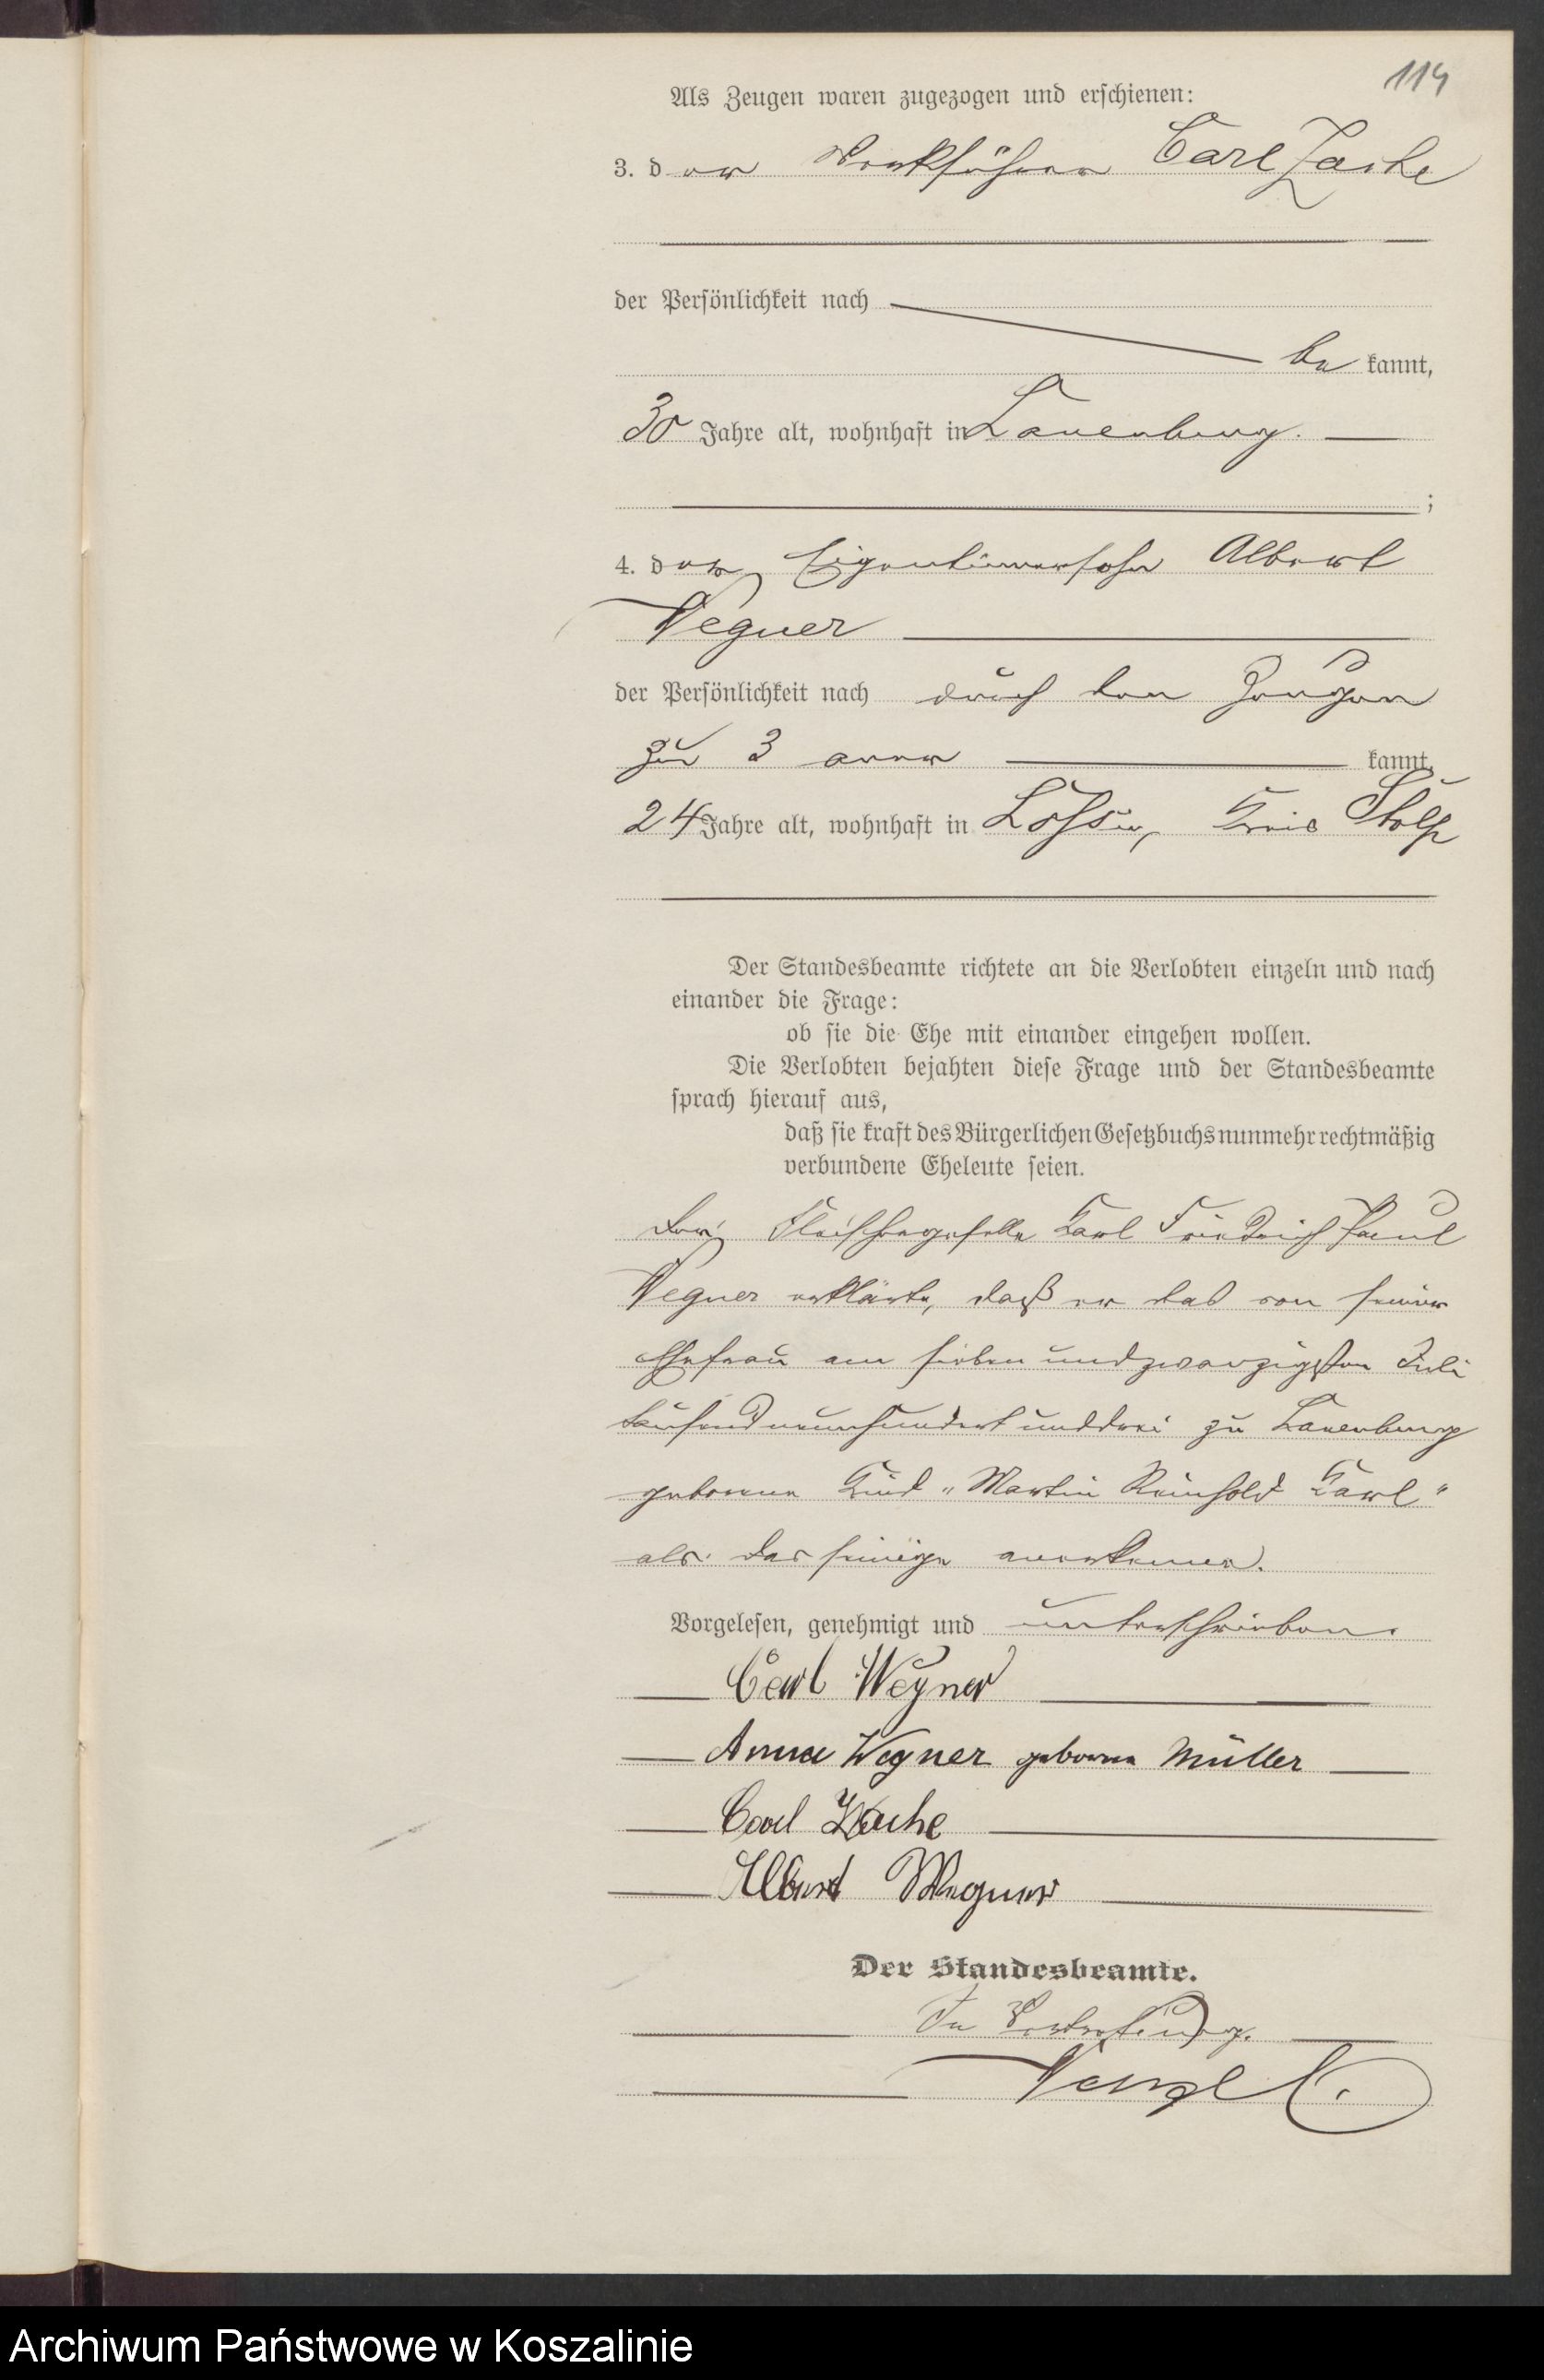 114
Als Zeugen waren zugezogen und erschienen:
3. der Werkführer Carl Zache
der Persönlichkeit nach
be kannt,
30 Jahre alt, wohnhaft in Lauenburg.
;
4. der Eigentümersohn Albert
Wegner
der Persönlichkeit nach durch den Zeugen
zu 3 aner kannt,
24 Jahre alt, wohnhaft in Kreis Stolp
Der Standesbeamte richtete an die Verlobten einzeln und nach
einander die Frage:
ob sie die Ehe mit einander eingehen wollen.
Die Verlobten bejahten diese Frage und der Standesbeamte
sprach hierauf aus,
daß sie kraft des Bürgerlichen Gesetzbuchs nunmehr rechtmäßig
verbundene Eheleute seien.
Der Fleischergeselle Karl Friedrich Paul
Wegner erklärte, daß er das von seiner
Ehefrau am siebenundzwanzigsten Juli
tausendneunhundertunddrei zu Lauenburg
geborene Kind „Martin Reinhold Karl"
als das seinige anerkenne.
Vorgelesen, genehmigt und unterschrieben.
Carl Wegner
Anna Wegner geborene Müller
Carl Zache
Albert Wegner
Der Standesbeamte.
In Vertretung.
Archiwum Państwowe w Koszalinie